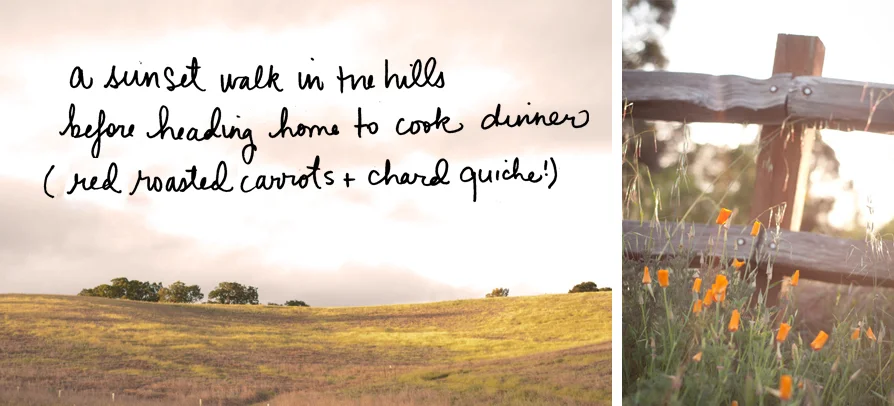 a sunset walk in the hills
before heading home to cook dinner
( red roasted carrots + chard quiche!)